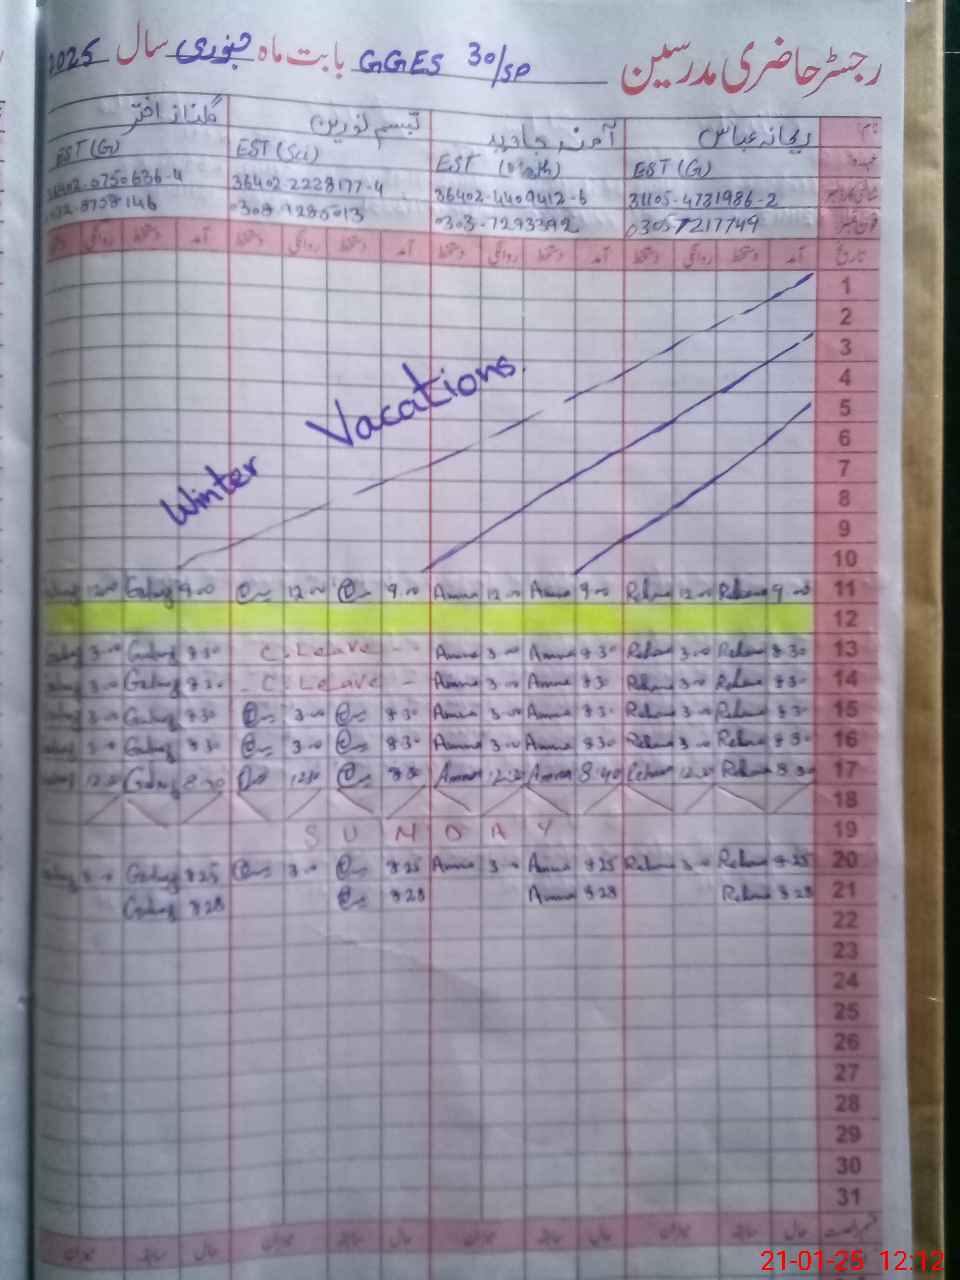 رجسٹر حاضری مدرسین GGES 30/SP بابت ماہ جنوری سال 2025
نام ریحانہ عباس آمنہ جاوید تبسم نورین گلناز اختر
عہدہ EST (G) EST EST (Sci) EST (G)
31105-4731986-2 36402-4409412-6 36402-2228177-4
03057217749 0303-7293392
تاریخ آمد دستخط روانگی دستخط آمد دستخط روانگی دستخط آمد دستخط روانگی دستخط آمد دستخط روانگی
1
2
3
4
5
6
7
8
9
10
Winter Vacations
11 9.00 Rehana 12.00 Rehana 9.00 Amna 12.00 Amna 9.00 12.00 9.00 Gulnaz 12.00
12
13 8.30 Rehana 3.00 Rehana 8.30 Amna 3.00 Amna C. Leave 8.30 Gulnaz 3.00
14 8.30 Rehana 3.00 Rehana 8.30 Amna 3.00 Amna C. Leave 8.30 Gulnaz 3.00
15 8.30 Rehana 3.00 Rehana 8.30 Amna 3.00 Amna 8.30 3.00 8.30 Gulnaz 3.00
16 8.30 Rehana 3.00 Rehana 8.30 Amna 3.00 Amna 8.30 3.00 8.30 Gulnaz 3.00
17 8.30 Rehana 12.30 Rehana 8.40 Amna 12.30 Amna 8.30 12.30 8.30 Gulnaz 12.30
18
19 SUNDAY
20 8.25 Rehana 3.00 Rehana 8.25 Amna 3.00 Amna 8.25 3.00 8.25 Gulnaz
21 8.28 Rehana 8.28 Amna 8.28 8.28 Gulnaz
22
23
24
25
26
27
28
29
30
31
حال سابقہ میزان حال سابقہ میزان حال سابقہ میزان حال سابقہ میزان
21-01-25 12:12